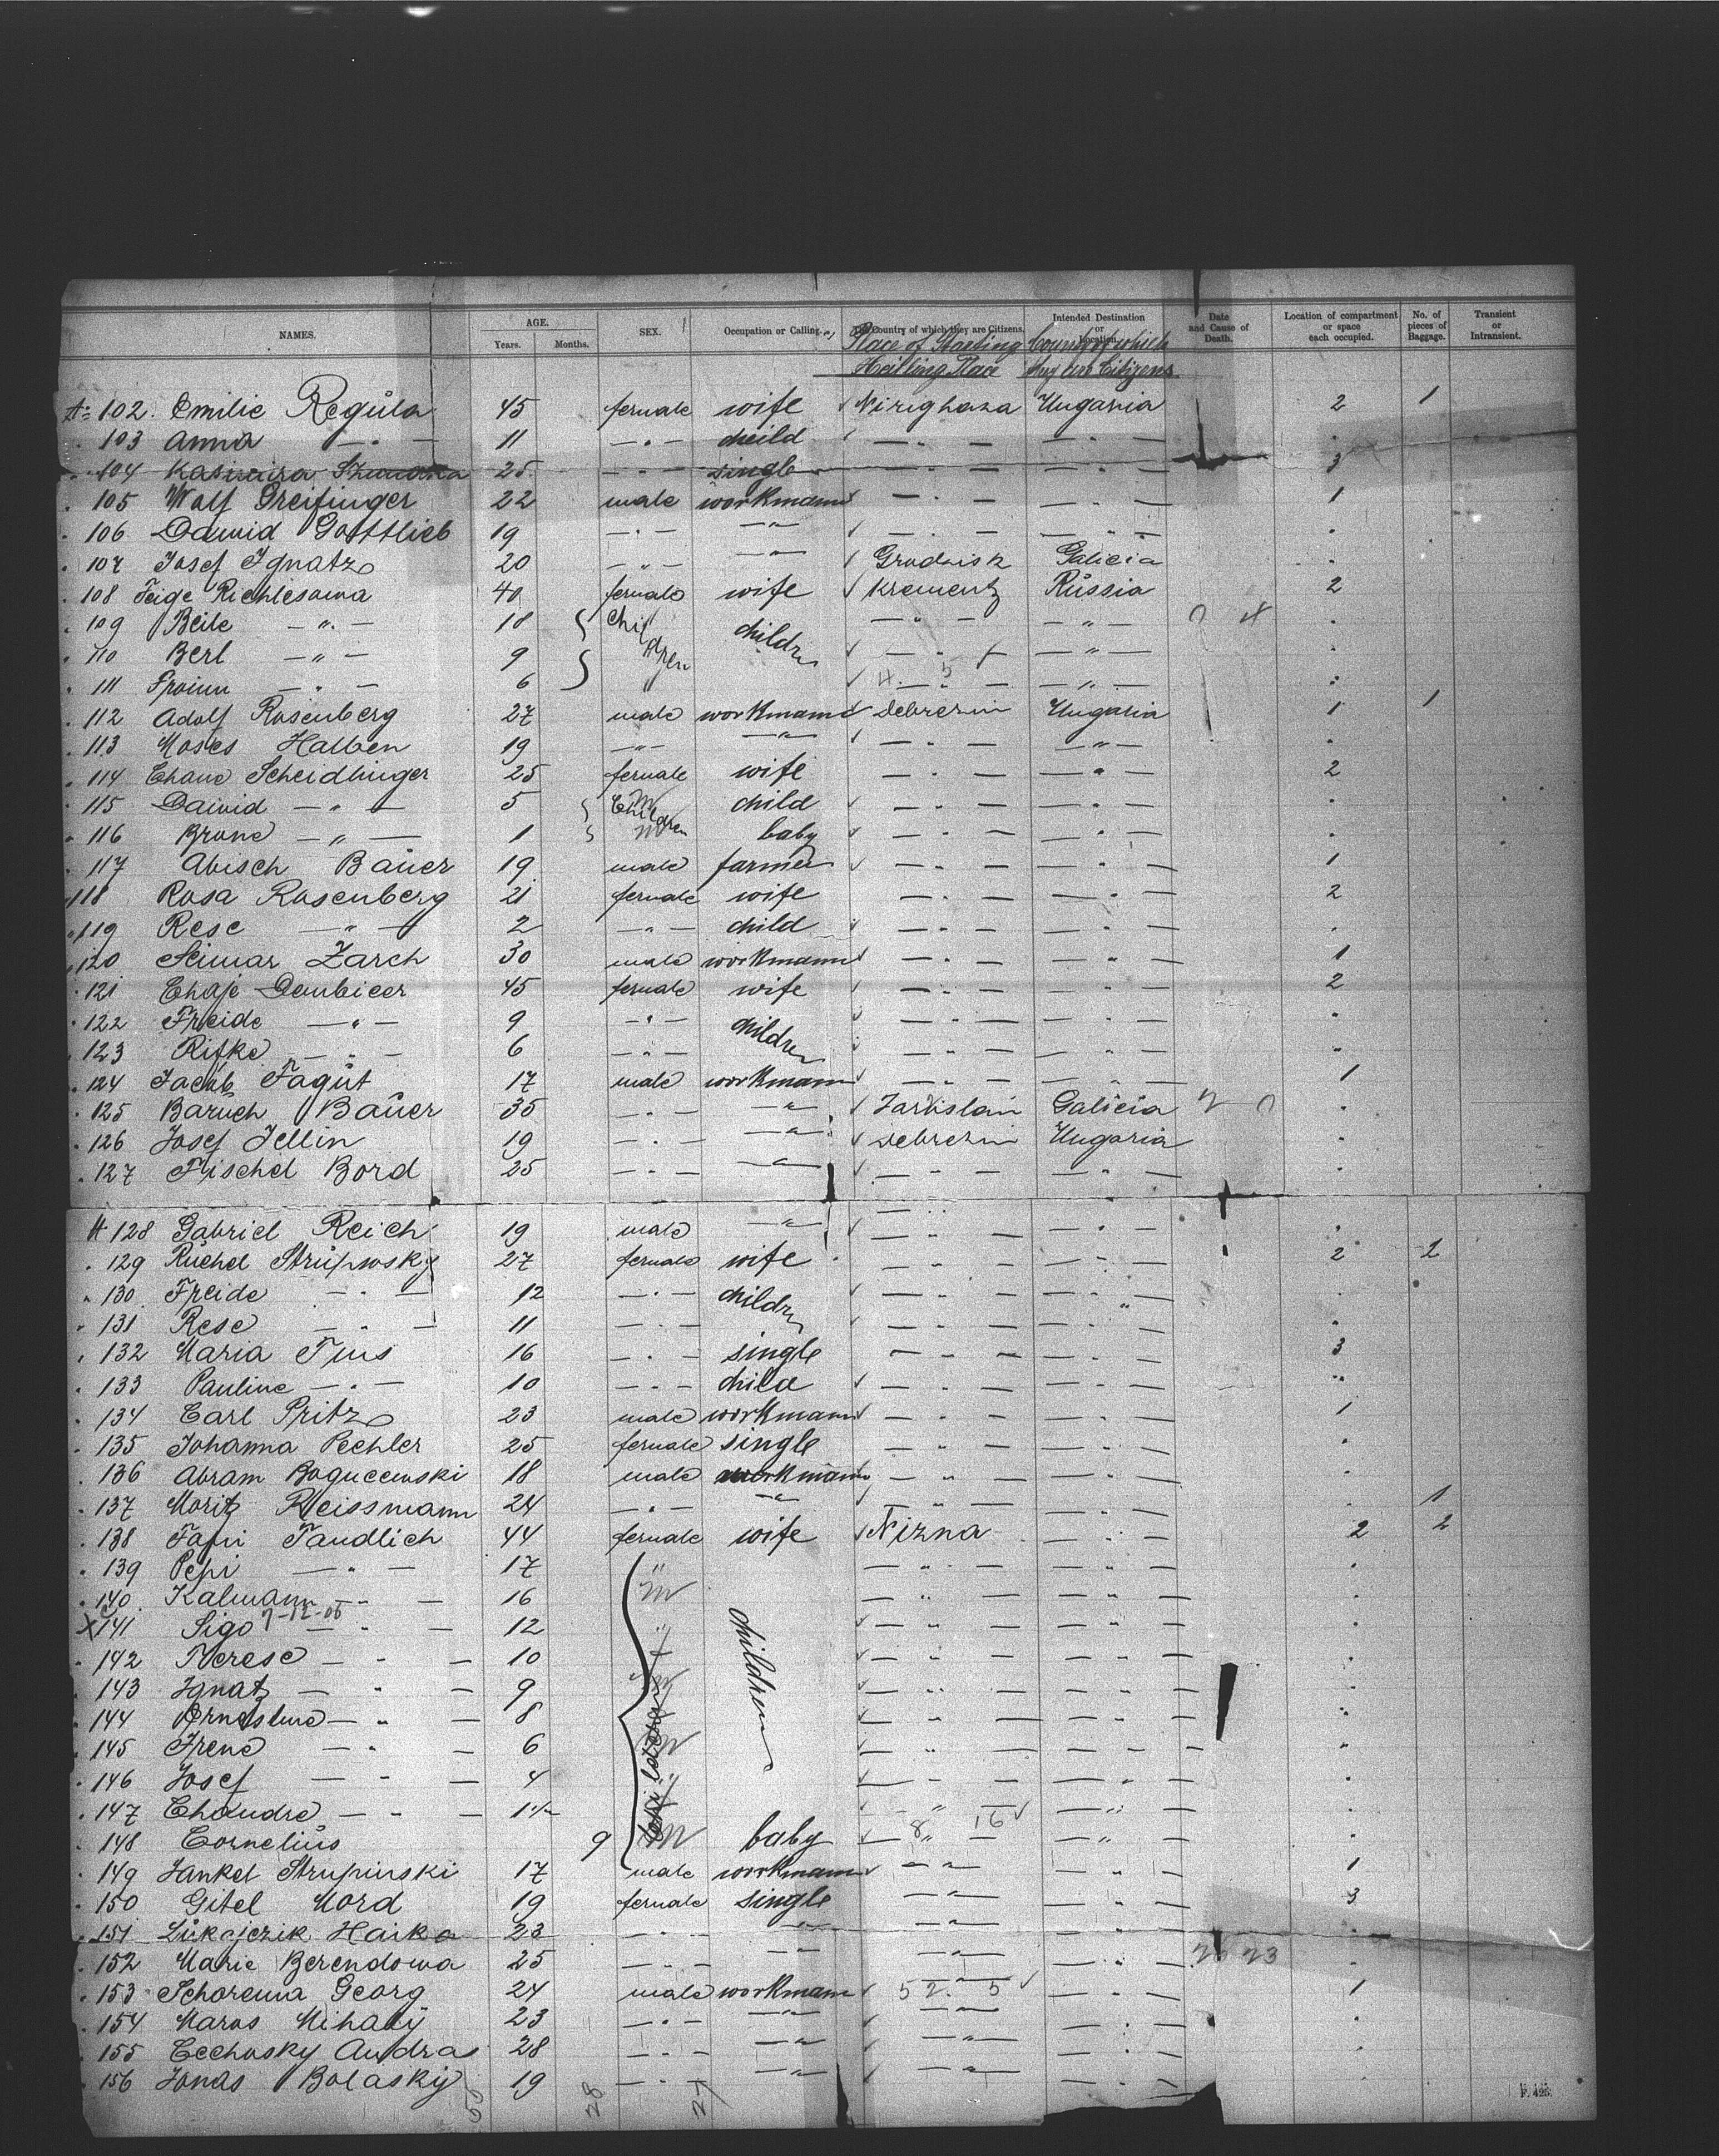 NAMES. AGE. Years. Months. SEX. Occupation or Calling. The Country of which they are Citizens. Intended Destination or Location. Date and Cause of Death. Location of compartment or space each occupied. No. of pieces of Baggage. Transient or Intransient.
Place of Starting County of which
Hailing Place they are Citizens
102. Emilie Regula 45 female wife Nireghaza Ungaria 2 1
103 Anna — " — 11 — " — cheild — " — — " — "
104 25 — " — single 3
105 Wolf Greifinger 22 male workmann — " — — " — 1
106 Dawid Gottlieb 19 — " — — " — — " — "
107 Josef Ignatz 20 — " — — " — Grodzisk Galicia "
108 Feige Richlesowa 40 female wife Krementz Russia 2
109 Beile — " — 18 children children — " — — " — "
110 Berl — " — 9 — " — — " — "
111 Froium — " — 6 4. 5 — — " — "
112 Adolf Rosenberg 27 male workmann Debrezin Ungaria 1 1
113 Moses Halben 19 — " — — " — — " — — " — "
114 Chane Scheidlinger 25 female wife — " — — " — 2
115 Dawid — " — 5 Children m child — " — — " — "
116 Brane — " — 1 m baby — " — — " — "
117 Abisch Bauer 19 male farmer — " — — " — 1
118 Rosa Rosenberg 21 female wife — " — — " — 2
119 Rese — " — 2 — " — child — " — — " — "
120 Seimar Zarch 30 male workmann — " — — " — 1
121 Chaje Denbicer 45 female wife — " — — " — 2
122 Freide — " — 9 — " — children — " — — " — "
123 Rifke — " — 6 — " — — " — — " — "
124 Jacob Fagut 17 male workmann — " — — " — 1
125 Baruch Bauer 35 — " — — " — Jarislau Galicia "
126 Josef Jellin 19 — " — — " — Debrezin Ungaria "
127 Fischel Bord 25 — " — — " — — " — — " — "
128 Gabriel Reich 19 male — " — — " — — " — "
129 Ruchel Strupwsky 27 female wife — " — — " — 2 2
130 Freide — " — 12 — " — children — " — — " — "
131 Rese — " — 11 — " — — " — — " — "
132 Maria Tins 16 — " — single — " — — " — 3
133 Pauline — " — 10 — " — child — " — — " — "
134 Carl Pritz 23 male workmann — " — — " — 1
135 Johanna Pechler 25 female single — " — — " — "
136 Abram Bogucewski 18 male workmann — " — — " — "
137 Moritz Reissmann 24 — " — — " — — " — — " — " 1
138 Fani Taudlich 44 female wife Nizna — " — 2 2
139 Pepi — " — 17 " children children — " — — " — "
140 Kalmann — " — 16 m — " — — " — "
X 141 Sigo 7-12-06 — " — 12 " — " — — " — "
142 Therese — " — 10 f — " — — " — "
143 Ignatz — " — 9 m — " — — " — "
144 Ernestine — " — 8 — " — — " — "
145 Irene — " — 6 m — " — — " — "
146 Josef — " — 4 " — " — — " — "
147 Chaudre — " — — " — 16 — " — "
148 Cornelius 9 m baby — 8 " — — " — "
149 Jankel Strupinski 17 male workmann — " — — " — 1
150 Gitel Mord 19 female single — " — — " — 3
151 Lukajczik Haika 23 — " — — " — — " — — " — "
152 Marie Berendowa 25 — " — — " — — " — — " — 23 "
153 Schorema Georg 24 male workmann 52. 5 — " — 1
154 Maros Mihaly 23 — " — — " — — " — — " — "
155 Cechosky Andras 28 — " — — " — — " — — " — "
156 Jonas Bolasky 19 — " — — " — — " — — " — "
58 28 27
F. 425.